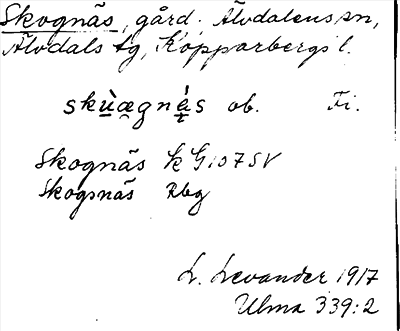 Skognäs, gård. Älvdalens sn,
Älvdals tg, Kopparbergs l.
skùægná̱s ob. Fi.
Skognäs K G107SV
Skogsnäs Rbg
L. Levander 1917
Ulma 339:2